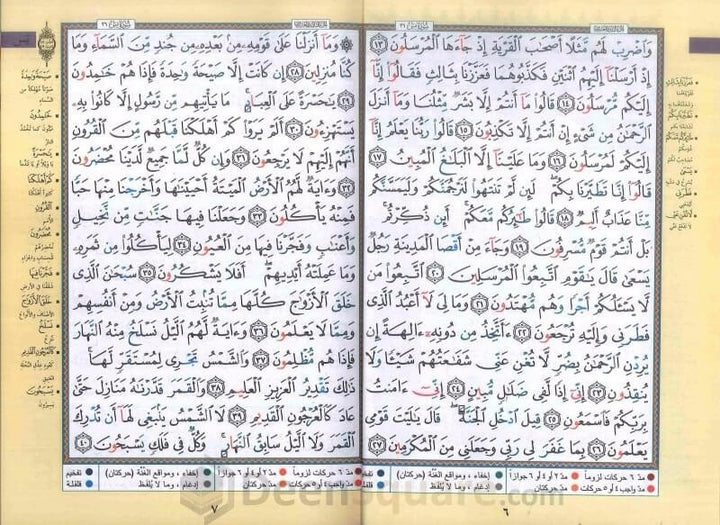 وَٱضْرِبْ لَهُم مَّثَلًا أَصْحَٰبَ ٱلْقَرْيَةِ إِذْ جَآءَهَا ٱلْمُرْسَلُونَ ١٣
إِذْ أَرْسَلْنَآ إِلَيْهِمُ ٱثْنَيْنِ فَكَذَّبُوهُمَا فَعَزَّزْنَا بِثَالِثٍ فَقَالُوٓا۟ إِنَّآ
إِلَيْكُم مُّرْسَلُونَ ١٤ قَالُوا۟ مَآ أَنتُمْ إِلَّا بَشَرٌ مِّثْلُنَا وَمَآ أَنزَلَ
ٱلرَّحْمَٰنُ مِن شَىْءٍ إِنْ أَنتُمْ إِلَّا تَكْذِبُونَ ١٥ قَالُوا۟ رَبُّنَا يَعْلَمُ إِنَّآ
إِلَيْكُمْ لَمُرْسَلُونَ ١٦ وَمَا عَلَيْنَآ إِلَّا ٱلْبَلَٰغُ ٱلْمُبِينُ ١٧
قَالُوٓا۟ إِنَّا تَطَيَّرْنَا بِكُمْ ۖ لَئِن لَّمْ تَنتَهُوا۟ لَنَرْجُمَنَّكُمْ وَلَيَمَسَّنَّكُم
مِّنَّا عَذَابٌ أَلِيمٌ ١٨ قَالُوا۟ طَٰٓئِرُكُم مَّعَكُمْ ۚ أَئِن ذُكِّرْتُم ۚ
بَلْ أَنتُمْ قَوْمٌ مُّسْرِفُونَ ١٩ وَجَآءَ مِنْ أَقْصَا ٱلْمَدِينَةِ رَجُلٌ
يَسْعَىٰ قَالَ يَٰقَوْمِ ٱتَّبِعُوا۟ ٱلْمُرْسَلِينَ ٢٠ ٱتَّبِعُوا۟ مَن
لَّا يَسْـَٔلُكُمْ أَجْرًا وَهُم مُّهْتَدُونَ ٢١ وَمَا لِىَ لَآ أَعْبُدُ ٱلَّذِى
فَطَرَنِى وَإِلَيْهِ تُرْجَعُونَ ٢٢ ءَأَتَّخِذُ مِن دُونِهِۦٓ ءَالِهَةً إِن
يُرِدْنِ ٱلرَّحْمَٰنُ بِضُرٍّ لَّا تُغْنِ عَنِّى شَفَٰعَتُهُمْ شَيْـًٔا وَلَا
يُنقِذُونِ ٢٣ إِنِّىٓ إِذًا لَّفِى ضَلَٰلٍ مُّبِينٍ ٢٤ إِنِّىٓ ءَامَنتُ
بِرَبِّكُمْ فَٱسْمَعُونِ ٢٥ قِيلَ ٱدْخُلِ ٱلْجَنَّةَ ۖ قَالَ يَٰلَيْتَ قَوْمِى
يَعْلَمُونَ ٢٦ بِمَا غَفَرَ لِى رَبِّى وَجَعَلَنِى مِنَ ٱلْمُكْرَمِينَ ٢٧
مدّ ٦ حركات لزوماً مدّ ٢ أو ٤ أو ٦ جوازاً إخفاء، ومواقع الغُنَّة (حركتان) تفخيم
مدّ واجب ٤ أو ٥ حركات مدّ حركتان إدغام، وما لا يُلفَظ قلقلة
٦
۞ وَمَآ أَنزَلْنَا عَلَىٰ قَوْمِهِۦ مِنۢ بَعْدِهِۦ مِن جُندٍ مِّنَ ٱلسَّمَآءِ وَمَا
كُنَّا مُنزِلِينَ ٢٨ إِن كَانَتْ إِلَّا صَيْحَةً وَٰحِدَةً فَإِذَا هُمْ خَٰمِدُونَ
٢٩ يَٰحَسْرَةً عَلَى ٱلْعِبَادِ ۚ مَا يَأْتِيهِم مِّن رَّسُولٍ إِلَّا كَانُوا۟ بِهِۦ
يَسْتَهْزِءُونَ ٣٠ أَلَمْ يَرَوْا۟ كَمْ أَهْلَكْنَا قَبْلَهُم مِّنَ ٱلْقُرُونِ
أَنَّهُمْ إِلَيْهِمْ لَا يَرْجِعُونَ ٣١ وَإِن كُلٌّ لَّمَّا جَمِيعٌ لَّدَيْنَا مُحْضَرُونَ
٣٢ وَءَايَةٌ لَّهُمُ ٱلْأَرْضُ ٱلْمَيْتَةُ أَحْيَيْنَٰهَا وَأَخْرَجْنَا مِنْهَا حَبًّا
فَمِنْهُ يَأْكُلُونَ ٣٣ وَجَعَلْنَا فِيهَا جَنَّٰتٍ مِّن نَّخِيلٍ
وَأَعْنَٰبٍ وَفَجَّرْنَا فِيهَا مِنَ ٱلْعُيُونِ ٣٤ لِيَأْكُلُوا۟ مِن ثَمَرِهِۦ
وَمَا عَمِلَتْهُ أَيْدِيهِمْ ۖ أَفَلَا يَشْكُرُونَ ٣٥ سُبْحَٰنَ ٱلَّذِى
خَلَقَ ٱلْأَزْوَٰجَ كُلَّهَا مِمَّا تُنۢبِتُ ٱلْأَرْضُ وَمِنْ أَنفُسِهِمْ
وَمِمَّا لَا يَعْلَمُونَ ٣٦ وَءَايَةٌ لَّهُمُ ٱلَّيْلُ نَسْلَخُ مِنْهُ ٱلنَّهَارَ
فَإِذَا هُم مُّظْلِمُونَ ٣٧ وَٱلشَّمْسُ تَجْرِى لِمُسْتَقَرٍّ لَّهَا ۚ
ذَٰلِكَ تَقْدِيرُ ٱلْعَزِيزِ ٱلْعَلِيمِ ٣٨ وَٱلْقَمَرَ قَدَّرْنَٰهُ مَنَازِلَ حَتَّىٰ
عَادَ كَٱلْعُرْجُونِ ٱلْقَدِيمِ ٣٩ لَا ٱلشَّمْسُ يَنۢبَغِى لَهَآ أَن تُدْرِكَ
ٱلْقَمَرَ وَلَا ٱلَّيْلُ سَابِقُ ٱلنَّهَارِ ۚ وَكُلٌّ فِى فَلَكٍ يَسْبَحُونَ ٤٠
مدّ ٦ حركات لزوماً مدّ ٢ أو ٤ أو ٦ جوازاً إخفاء، ومواقع الغُنَّة (حركتان) تفخيم
مدّ واجب ٤ أو ٥ حركات مدّ حركتان إدغام، وما لا يُلفَظ قلقلة
٧
صَيْحَةً وَٰحِدَةً
خَٰمِدُونَ
يَٰحَسْرَةً
كَمْ أَهْلَكْنَا
ٱلْقُرُونِ
مُحْضَرُونَ
فَجَّرْنَا فِيهَا
خَلَقَ ٱلْأَزْوَٰجَ
نَسْلَخُ
كَٱلْعُرْجُونِ ٱلْقَدِيمِ
يَسْبَحُونَ
Deensquare.com